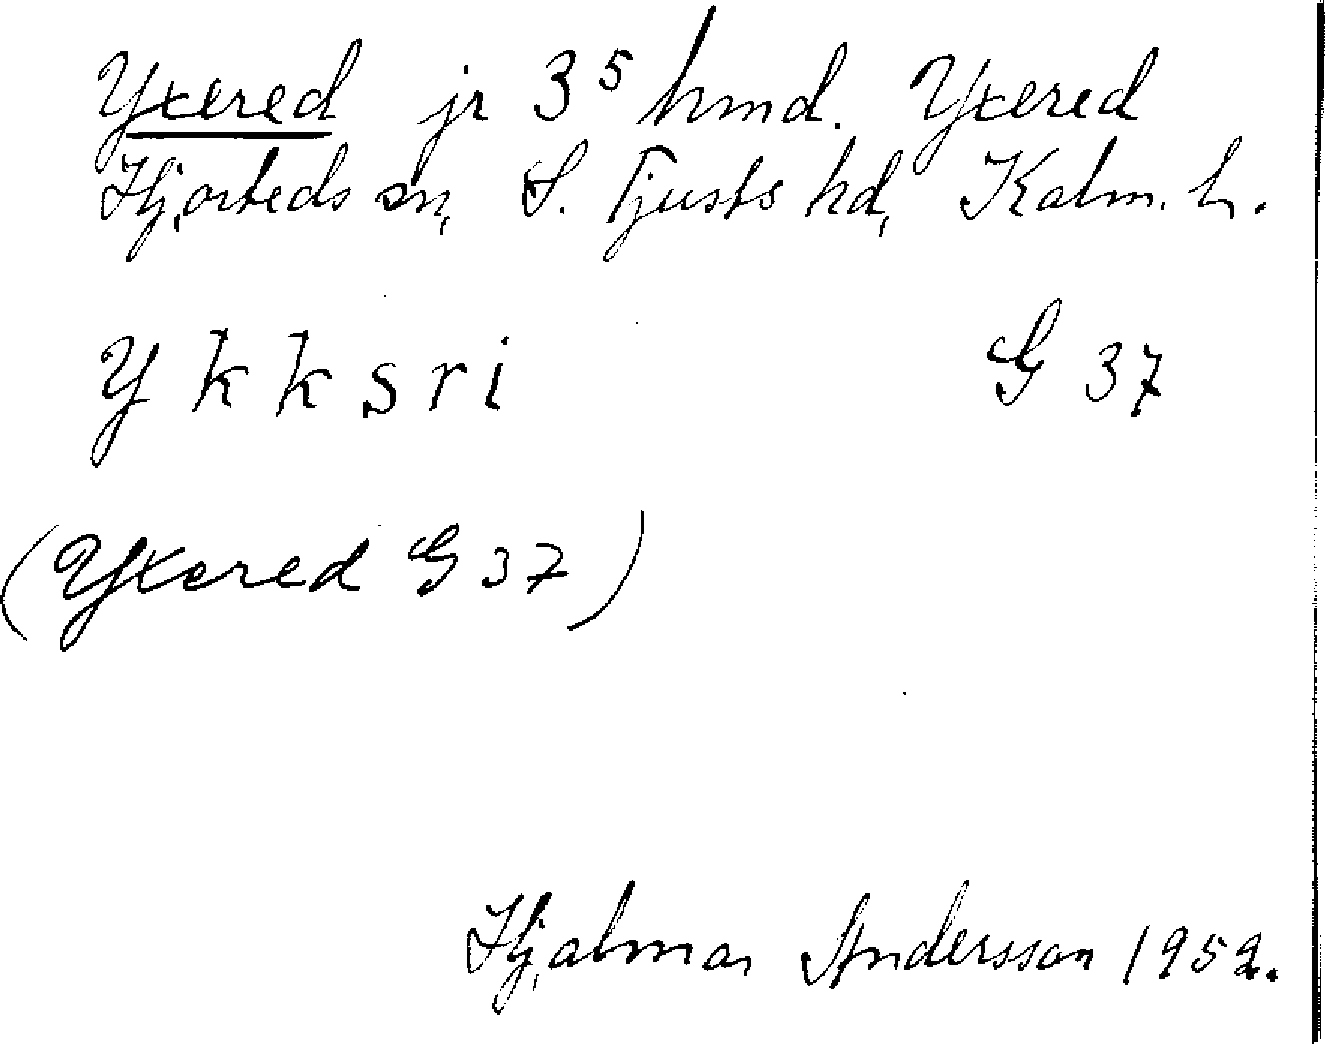 Yxered jr 3⁵ hmd. Yxered
Hjorteds sn, S. Tjusts hd, Kalm. L.
Y k k s r i G 37
(Yxered G 37)
Hjalmar Andersson 1952.